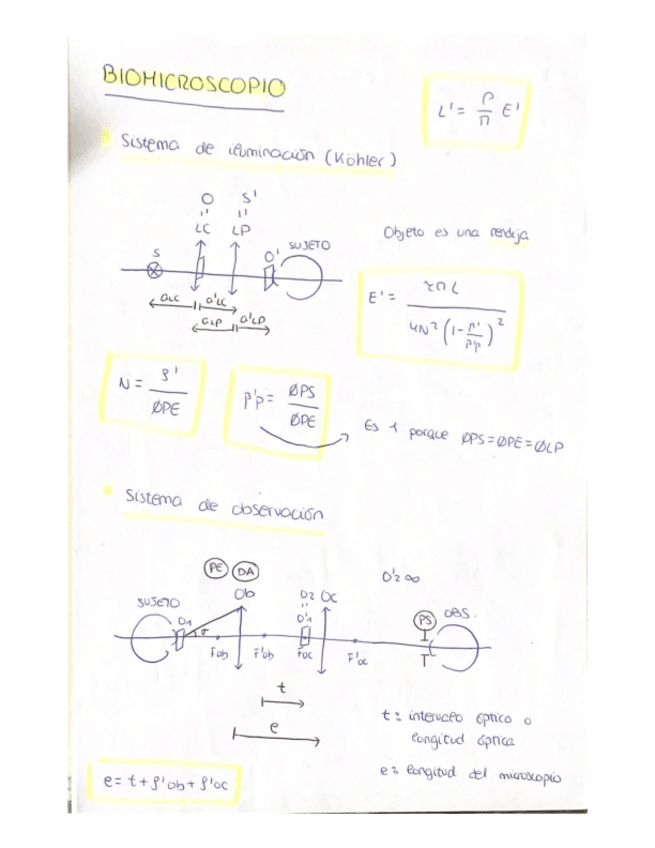 BIOMICROSCOPIO
L' = ρ/π E'
Sistema de iluminación (Köhler)
O S'
" "
LC LP
S O' SUJETO
Objeto es una rendija
aLC a'LC
aLP a'LP
E' = τπL / 4N² (1 - β'/β'p)²
N = f' / ØPE
β'p = ØPS / ØPE
Es 1 porque ØPS = ØPE = ØLP
Sistema de observación
PE DA
O'2 ∞
SUJETO Ob O2 OC OBS.
O1 σ O'1 PS
Fob F'ob Foc F'oc
t
e
t = intervalo óptico o
longitud óptica
e = longitud del microscopio
e = t + f'ob + f'oc